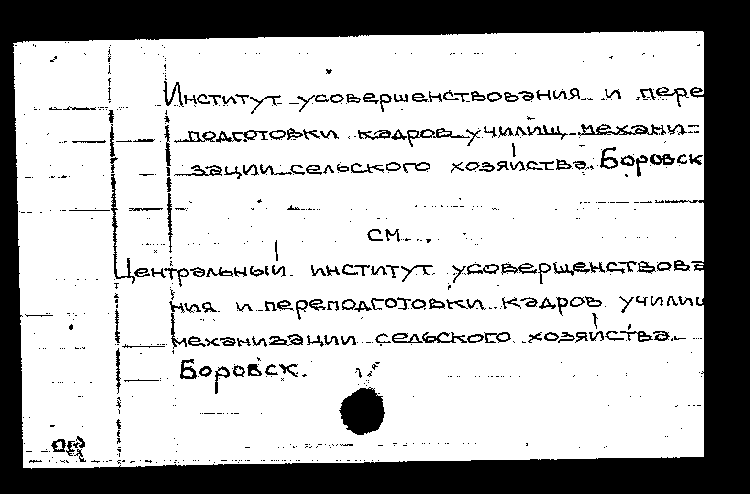 Институт усовершенствования и пере
подготовки кадров училищ механи-
зации сельского хозяйства. Боровск
см.
Центральный институт усовершенствова
ния и переподготовки кадров училищ
механизации сельского хозяйства.
Боровск.